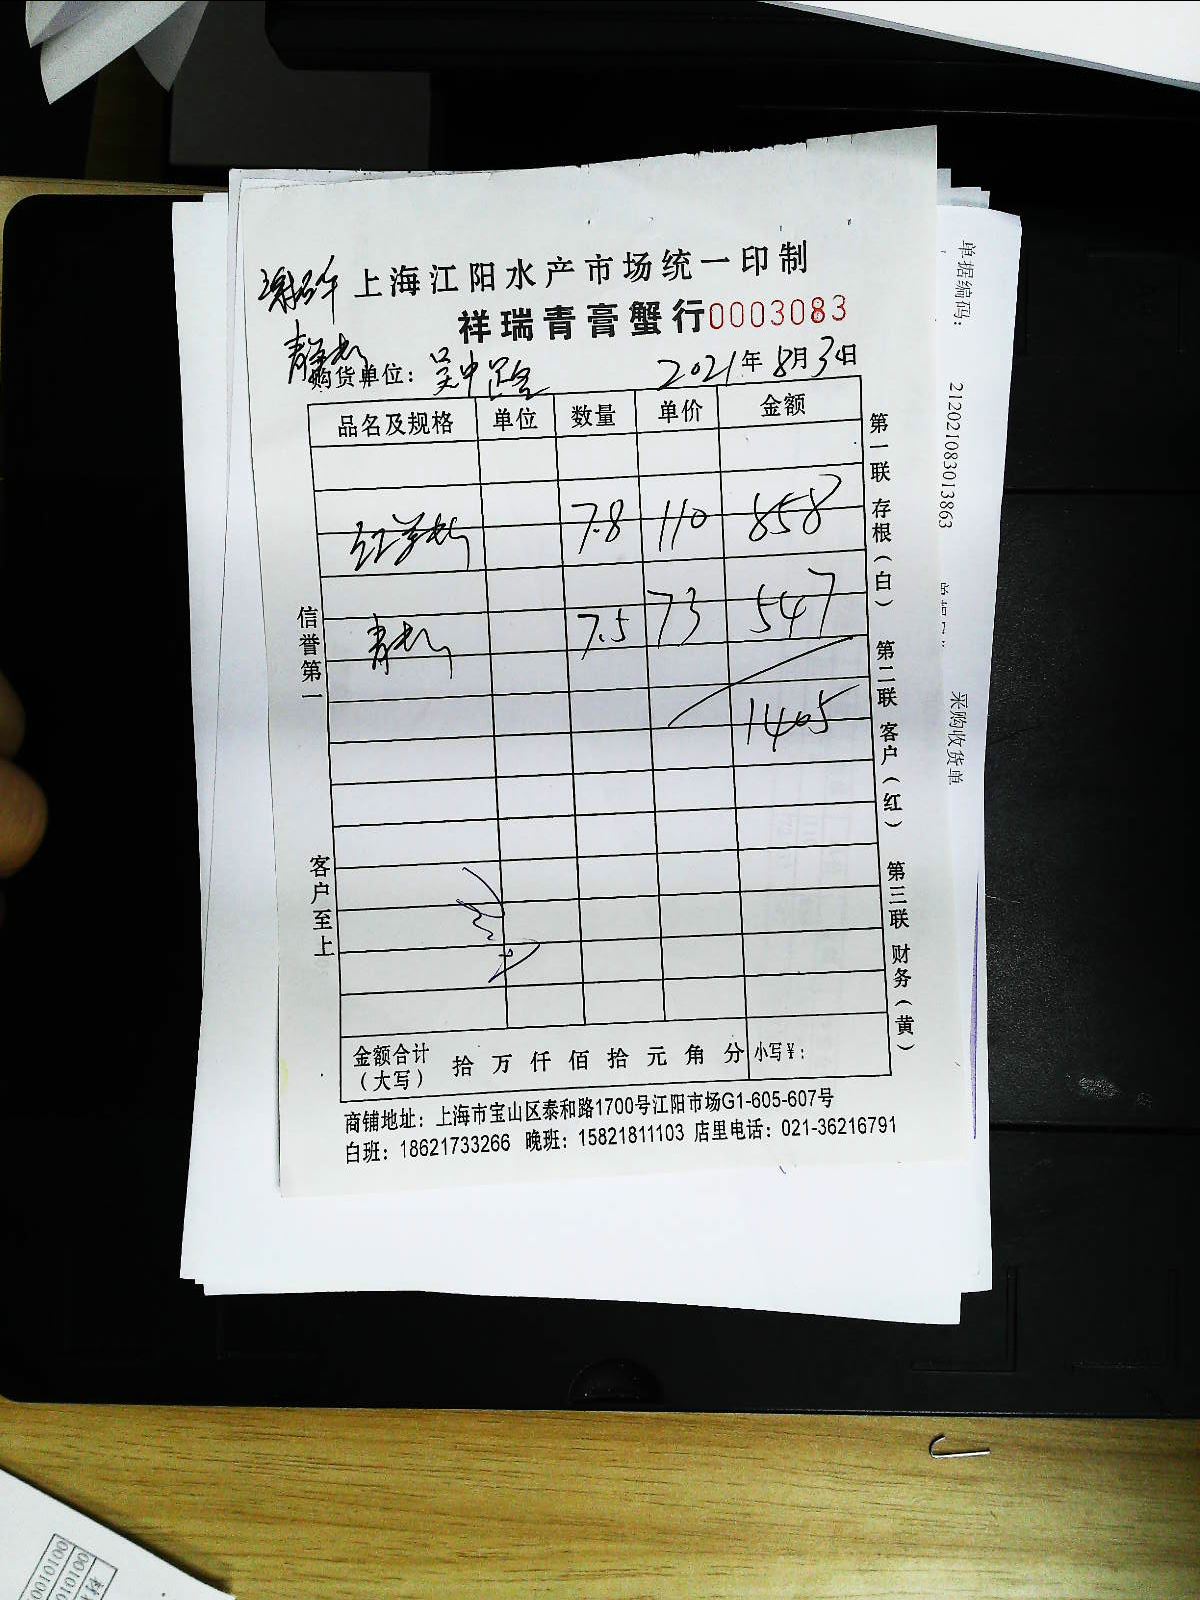 上海江阳水产市场统一印制
祥瑞青膏蟹行0003083
购货单位：
2021年8月30日
品名及规格 单位 数量 单价 金额
7.8 110 858
青 7.5 73 547
1405
信誉第一
客户至上
第一联 存根（白）
第二联 客户（红）
第三联 财务（黄）
金额合计（大写） 拾 万 仟 佰 拾 元 角 分 小写￥：
商铺地址：上海市宝山区泰和路1700号江阳市场G1-605-607号
白班：18621733266 晚班：15821811103 店里电话：021-36216791
单据编码：
212021083013863
采购收货单